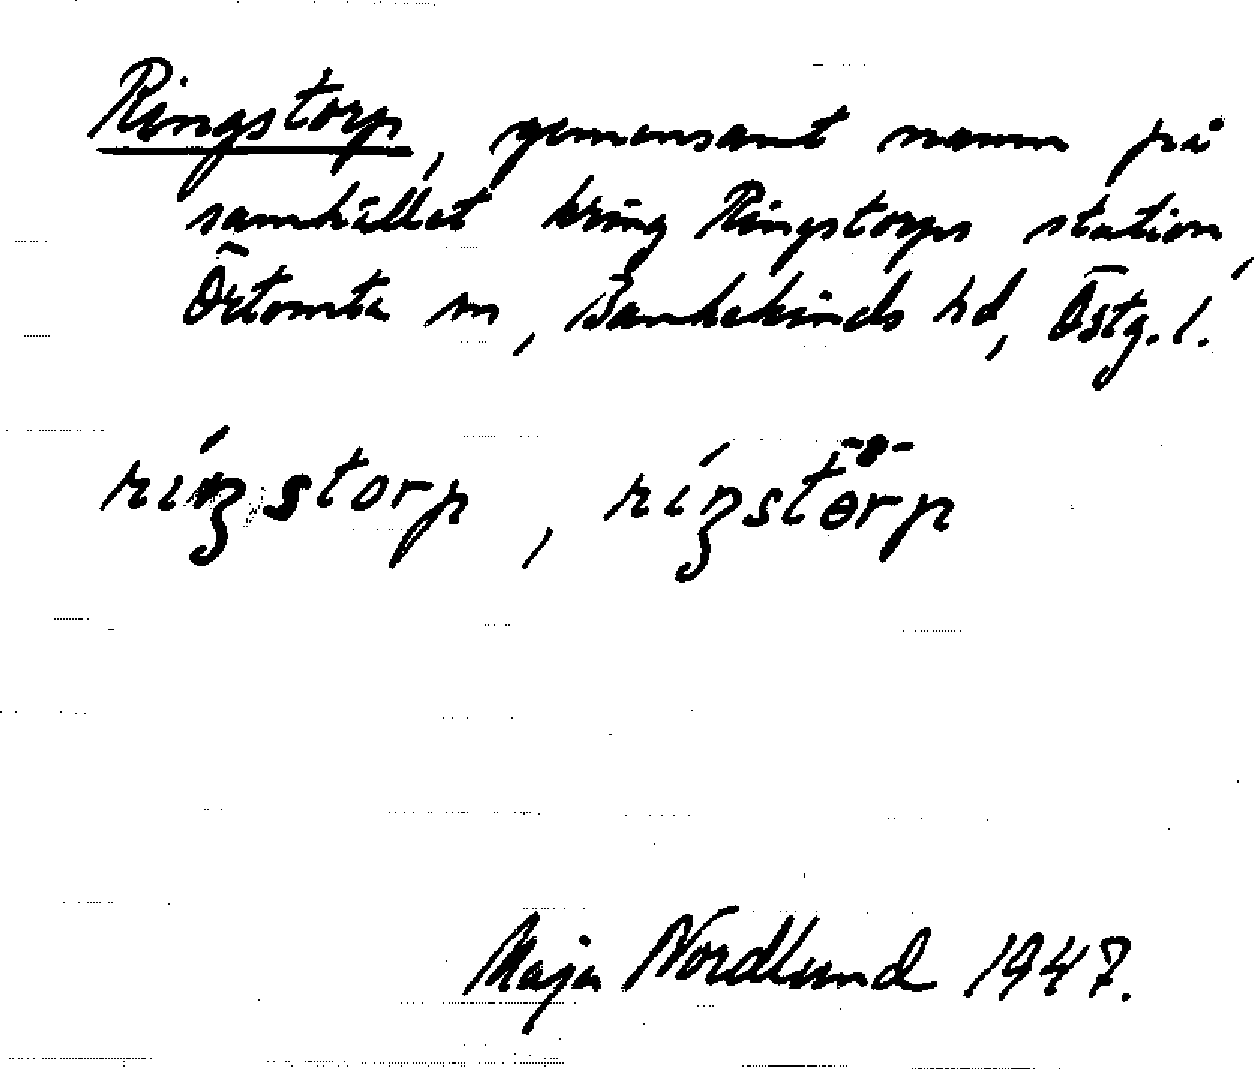 Ringstorp, gemensamt namn på
samhället kring Ringstorps station,
Örtomta sn, Bankekinds hd, Östg. l.
ríŋstorp, ríŋstɵrp
Maja Nordlund 1947.